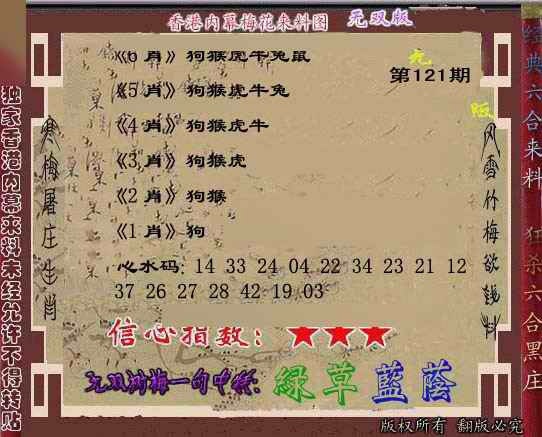 香港内幕梅花来料图 无双版
《6 肖》狗猴虎牛兔鼠
第121期
《5 肖》狗猴虎牛兔
《4 肖》狗猴虎牛
《3 肖》狗猴虎
《2 肖》狗猴
《1 肖》狗
心水码: 14 33 24 04 22 34 23 21 12
37 26 27 28 42 19 03
信心指数: ★★★
无双踏梅一句中特: 绿草蓝荫
版权所有 翻版必究
独家香港内幕来料未经允许不得转贴
寒梅屠庄生肖
风雪竹梅欲钱料
经典六合来料 狂杀六合黑庄